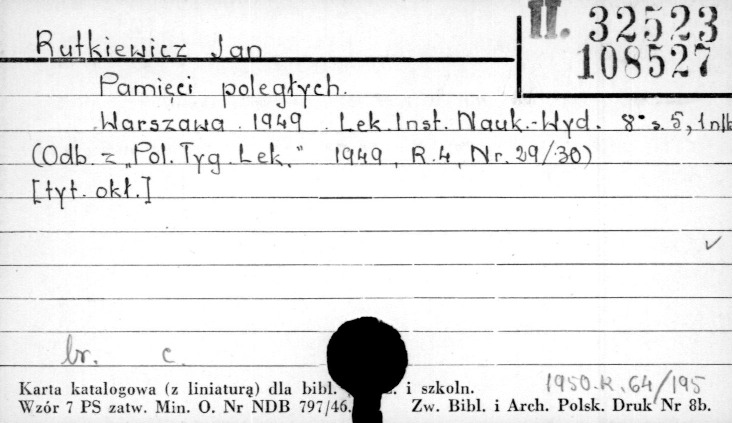 II. 32523
108527
Rutkiewicz Jan
Pamięci poległych.
Warszawa 1949. Lek. Inst. Nauk.-Wyd. 8° s. 5, 1 nlb
(Odb. z „Pol. Tyg. Lek." 1949, R.4, Nr. 29/30)
[tyt. okł.]
br. c.
1950.K.64/195
Karta katalogowa (z liniaturą) dla bibl. i szkoln.
Wzór 7 PS zatw. Min. O. Nr NDB 797/46. Zw. Bibl. i Arch. Polsk. Druk Nr 8b.